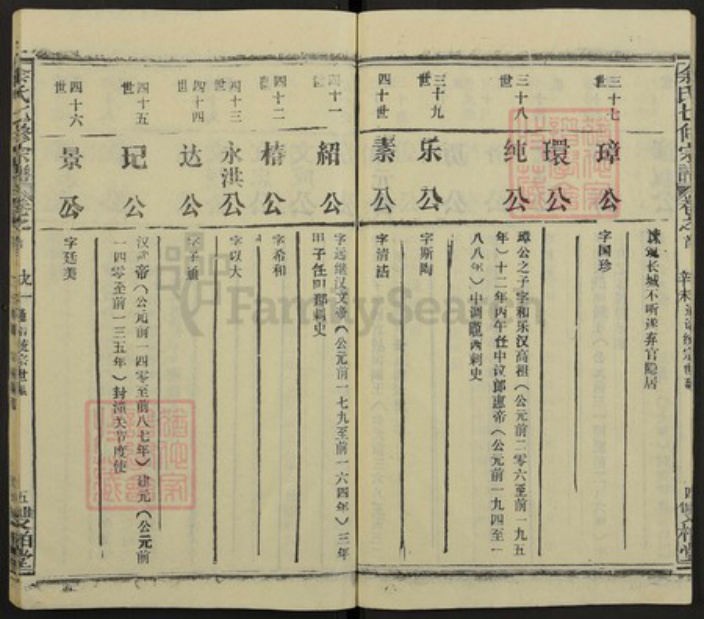 余氏七修宗譜 卷之首
谏筑长城不听遂弃官隐居
三十七世
璋公
字国珍
環公
三十八世
纯公
璋公之子字和乐汉高祖（公元前二零六至前一九五
年）十二年丙午任中议郎惠帝（公元前一九四至一
八八年）中调陇西刺史
三十九世
乐公
字斯陶
四十世
素公
字清洁
四十一世
紹公
字远继汉文帝（公元前一七九至前一六四年）三年
甲子任 郡刺史
四十二
椿公
字希和
四十三世
永洪公
字以大
四十四世
达公
字子通
四十五世
玘公
汉武帝（公元前一四零至前八七年）建元（公元前
一四零至前一三五年）封潼关节度使
四十六世
景公
字廷美
余氏七修宗譜
FamilySearch